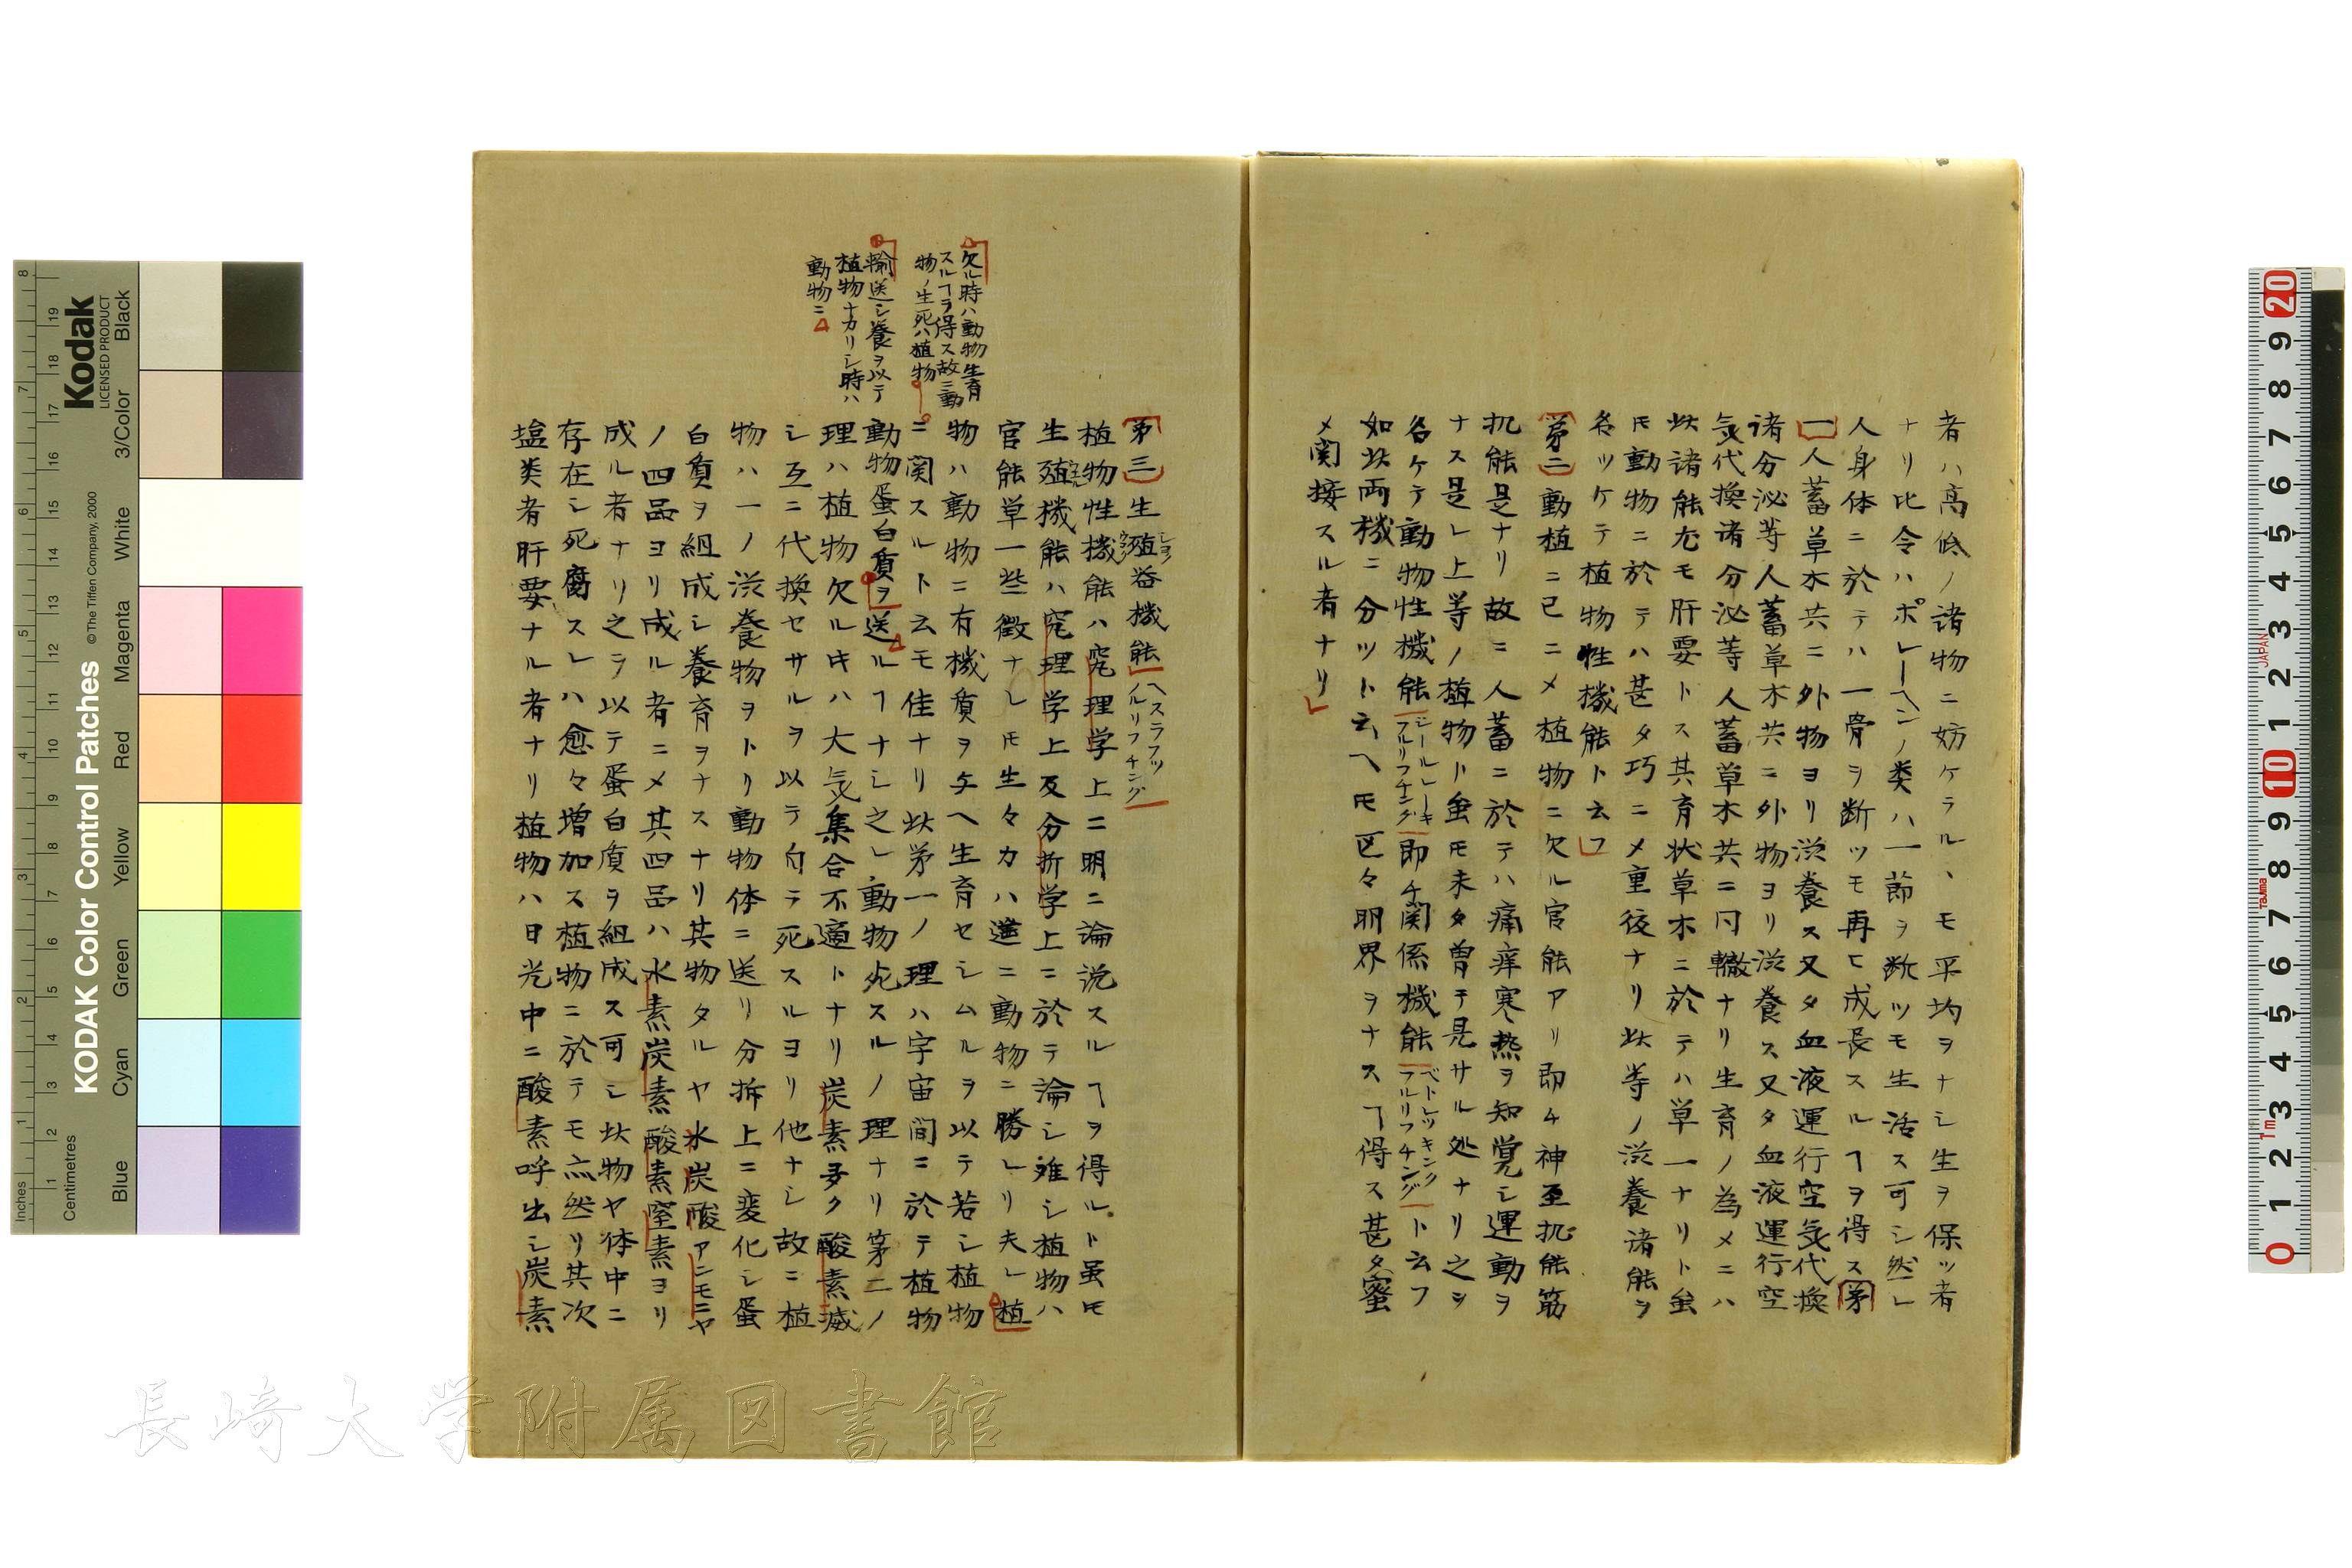 者ハ高低ノ諸物ニ妨ケラルヽモ平均ヲナシ生ヲ保ツ者
ナリ比令ハポレーヘンノ類ハ一節ヲ断ツモ生活ス可シ然レ
人身体ニ於テハ一骨ヲ断ツモ再ヒ成長スルヿヲ得ス第
一人蓄草木共ニ外物ヨリ滋養ス又タ血液運行空気代換
諸分泌等人蓄草木共ニ外物ヨリ滋養ス又タ血液運行空
気代換諸分泌等人蓄草木共ニ同轍ナリ生育ノ為メニハ
此諸能尤モ肝要トス其育状草木ニ於テハ草一ナリト虽
𪜈動物ニ於テハ甚タ巧ニメ重復ナリ此等ノ滋養諸能ヲ
名ツケテ植物性機能ト云フ
第二動植ニ已ニメ植物ニ欠ル官能アリ即チ神至机能筋
机能是ナリ故ニ人蓄ニ於テハ痛痒寒熱ヲ知覚シ運動ヲ
ナス是レ上等ノ植物ト虽𪜈未タ曽テ見サル処ナリ之ヲ
名ケテ動物性機能 ジールレーキフルリフチング 即チ関係機能 ベトレッキンクフルリフチング ト云フ
如此両機ニ分ツト云ヘ𪜈区々明界ヲナスヿ得ス甚タ蜜
メ関接スル者ナリ
欠ル時ハ動物生育
スルヿヲ得ス故ニ動
物ノ生死ハ植物
輸送シ養ヲ以テ
植物ナカリシ時ハ
動物ニ
第三生殖器機能 ヘスラフツノルリフチング
植物性機能ハ究理学上ニ明ニ論説スルヿヲ得ルト虽𪜈
生殖機能ハ究理学上及分析学上ニ於テ論シ難シ植物ハ
官能草一些徴ナレ𪜈生々力ハ遥ニ動物ニ勝レリ夫レ植
物ハ動物ニ有機質ヲ与ヘ生育セシムルヲ以テ若シ植物
ニ関スルト云モ佳ナリ此第一ノ理ハ宇宙間ニ於テ植物
動物蛋白質ヲ送ルヿナシ之レ動物死スルノ理ナリ第二ノ
理ハ植物欠ル𪜈ハ大気集合不適トナリ炭素多ク酸素滅
シ互ニ代換セサルヲ以テ自テ死スルヨリ他ナシ故ニ植
物ハ一ノ滋養物ヲトリ動物体ニ送リ分拆上ニ変化シ蛋
白質ヲ組成シ養育ヲナスナリ其物タルヤ水炭酸アンモニヤ
ノ四品ヨリ成ル者ニメ其四品ハ水素炭素酸素窒素ヨリ
成ル者ナリ之ヲ以テ蛋白質ヲ組成ス可シ此物ヤ体中ニ
存在シ死腐スレハ愈々増加ス植物ニ於テモ亦然リ其次
塩类者肝要ナル者ナリ植物ハ日光中ニ酸素呼出シ炭素
長崎大学附属図書館
KODAK Color Control Patches
© The Tiffen Company, 2000
Kodak
LICENSED PRODUCT
Inches
Centimetres
Blue
Cyan
Green
Yellow
Red
Magenta
White
3/Color
Black
JAPAN
TAJIMA
1m